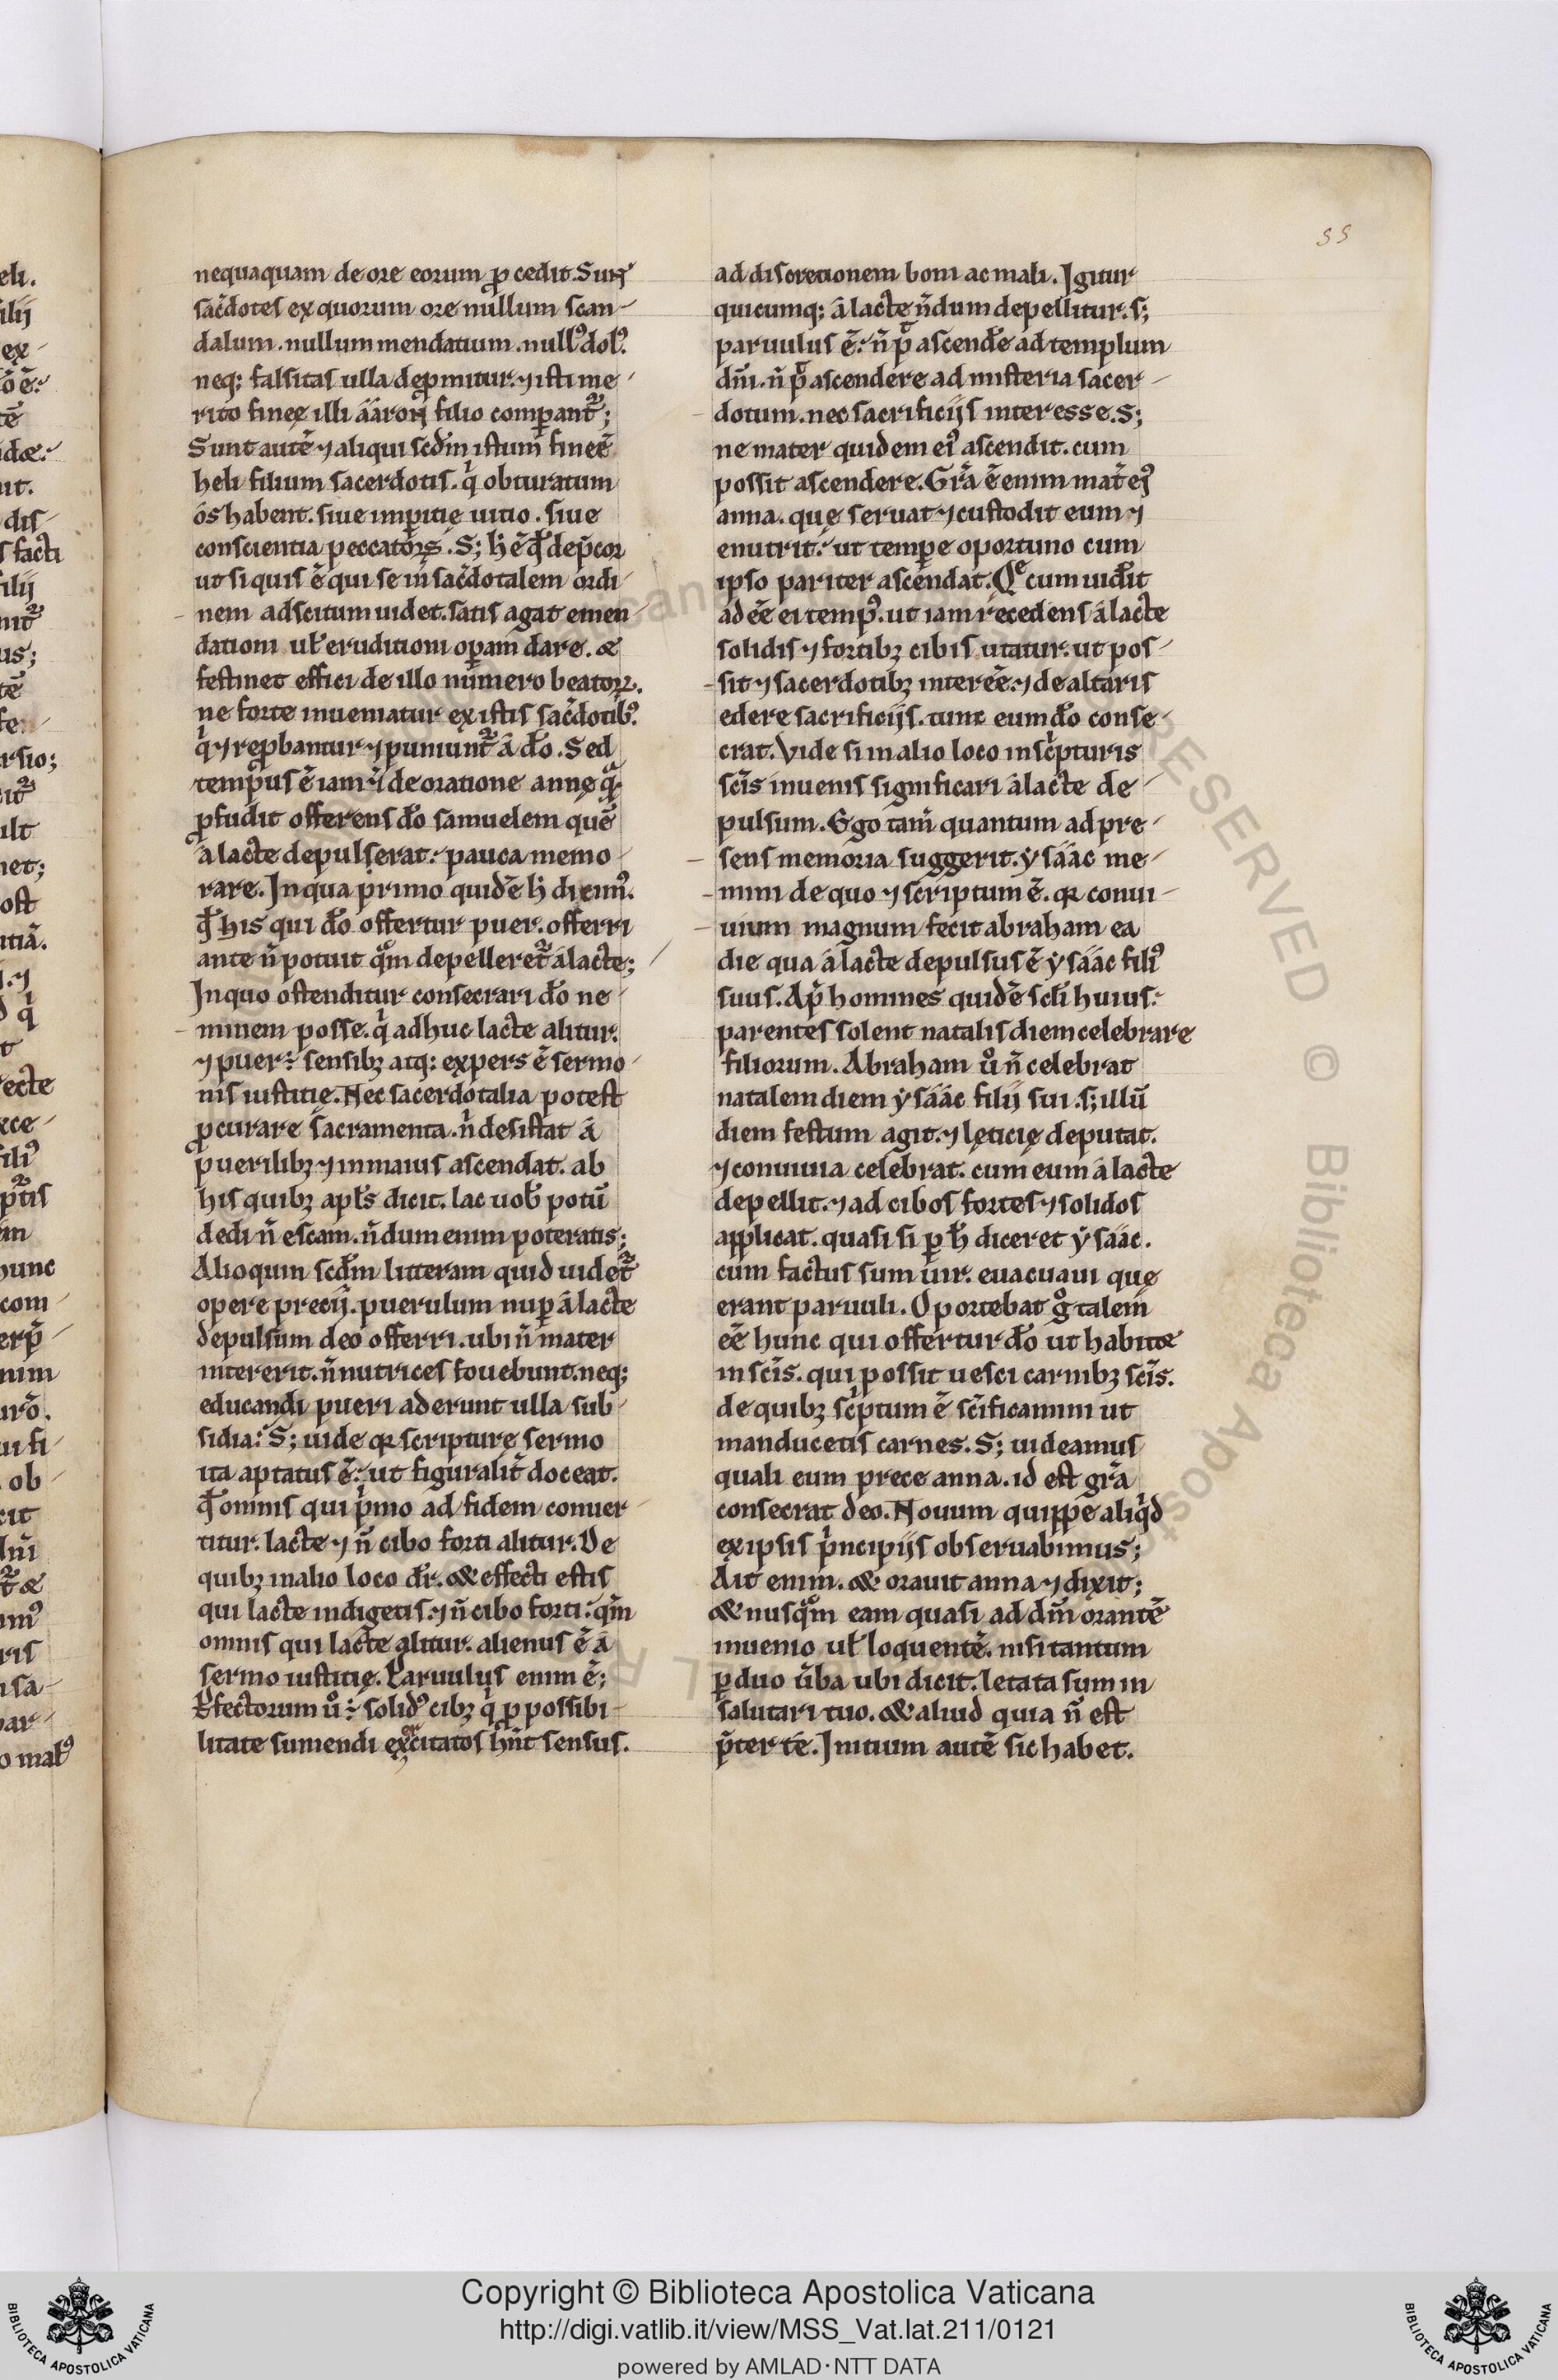 55
nequaquam de ore eorum ꝓcedit. Sunt
sac̄dotes ex quorum ore nullum scan-
dalum. nullum mendatium. nullꝰ dolꝰ.
neq; falsitas ulla depꝛomitur. ⁊ isti me-
rito fineę illi ââron filio comꝑant᷑;
Sunt autē ⁊ aliqui scd̄m istum fineē
heli filium sacerdotis. qͥ obturatum
ôs habent. siue imꝑitię uitio. siue
conscientia peccatoꝝ. S; h̄ ē qd̄ dep̄cor
ut si quis ē qui se in sac̄dotalem ordi-
nem adscitum uidet. satis agat emen-
dationi ul̄ eruditioni oꝑam dare. &
festinet effici de illo numero beatoꝝ.
ne forte inueniatur ex istis sac̄dotibꝰ.
qͥ ⁊ reꝓbantur ⁊ puniunt᷑ â dō. Sed
tempus ē iam ⁊ de oratione annę qͣ
ꝓfudit offerens dō samuelem quē
â lacte depulserat. pauca memo-
rare. In qua primo quidē h̄ dicimꝰ.
qd̄ his qui dō offertur puer. offerri
ante n̄ potuit qͣm depelleret᷑ â lacte;
In quo ostenditur consecrari dō ne-
minem posse. qͥ adhuc lacte alitur.
⁊ puer. sensibꝫ atq; expers ē sermo-
nis iustitię. Nec sacerdotalia potest
ꝓcurare sacramenta. n̄ desistat â
puerilibꝫ ⁊ in maius ascendat. ab
his quibꝫ apl̄s dicit. lac uob̄ potū
dedi n̄ escam. n̄dum enim poteratis;
Alioquin scd̄m litteram quid uidet᷑
opere precij. puerulum nuꝑ â lacte
depulsum deo offerri. ubi n̄ mater
intererit. n̄ nutrices fouebunt. neq;
educandi pueri aderunt ulla sub-
sidia. S; uide qꝛ scripturę sermo
ita aptatus ē. ut figuralit̄ doceat.
qd̄ omnis qui pͥmo ad fidem conuer-
titur. lacte ⁊ n̄ cibo forti alitur. De
quibꝫ in alio loco dr̄. & effecti estis
qui lacte indigetis. ⁊ n̄ cibo forti. qm̄
omnis qui lacte alitur. alienus ē â
sermo iustitię. Paruulus enim ē;
Ꝑfectorum ů. solidꝰ cibꝫ qͥ ꝓ possibi-
litate sumendi exercitatos hn̄t sensus.
ad discretionem boni ac mali. Igitur
quicumq; â lacte n̄dum depellitur. s;
paruulus ē. n̄ p̄t ascendē ad templum
dn̄i. n̄ p̄t ascendere ad misteria sacer-
dotum. nec sacrificijs interesse. S;
ne mater quidem eiꝰ ascendit. cum
possit ascendere. Grā ē enim mat̄ eiꝰ
anna. quę seruat ⁊ custodit eum ⁊
enutrit. ut temꝑe oportuno cum
ipso pariter ascendat. Qͤ cum uid̄it
adeē ei tempꝰ. ut iam recedens â lacte
solidis ⁊ fortibꝫ cibis utatur. ut pos-
sit ⁊ sacerdotibꝫ intereē. ⁊ de altaris
edere sacrificijs. tunc eum dō conse-
crat. Vide si in alio loco in scͥpturis
sc̄is inuenis significari â lacte de-
pulsum. Ego tam̄ quantum ad pre-
sens memoria suggerit. ẏsââc me-
mini de quo ⁊ scriptum ē. qꝛ conui-
uium magnum fecit abraham ea
die qua â lacte depulsus ē ẏsââc filiꝰ
suus. Ap̄ homines quidē scl̄i huius.
parentes solent natalis diem celebrare
filiorum. Abraham ů n̄ celebrat
natalem diem ẏsââc filij sui. s; illū
diem festum agit. ⁊ lęticię deputat.
⁊ conuiuia celebrat. cum eum â lacte
depellit. ⁊ ad cibos fortes ⁊ solidos
applicat. quasi si ꝑ h̄ diceret ẏsââc.
cum factus sum uir. euacuaui que
erant paruuli. Oportebat gͦ talem
eē hunc qui offertur dō ut habit&
in sc̄is. qui possit uesci carnibꝫ sc̄is.
de quibꝫ scͥptum ē sc̄ificamini ut
manducetis carnes. S; uideamus
quali eum prece anna. id est grā
consecrat deo. Nouum quippe aliqͥd
ex ipsis pͥncipijs obseruabimus;
Ait enim. & orauit anna ⁊ dixit;
& nusqͣm eam quasi ad dn̄m orantē
inuenio ul̄ loquentē. nisi tantum
ꝑ duo ūba ubi dicit. letata sum in
salutari tuo. & aliud quia n̄ est
p̄ter te. Initium autē sic habet.
Copyright © Biblioteca Apostolica Vaticana
http://digi.vatlib.it/view/MSS_Vat.lat.211/0121
powered by AMLAD·NTT DATA
BIBLIOTECA APOSTOLICA VATICANA
BIBLIOTECA APOSTOLICA VATICANA